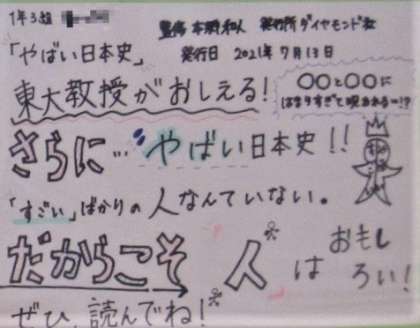 1年3組
監修 本郷和人 発行所 ダイヤモンド社
「やばい日本史」
発行日 2021年7月13日
東大教授がおしえる!
〇〇と〇〇に
はまりすぎて呪われる…!?
さらに…やばい日本史!!
「すごい」ばかりの人なんていない。
だからこそ人はおもしろい!
ぜひ、読んでね!